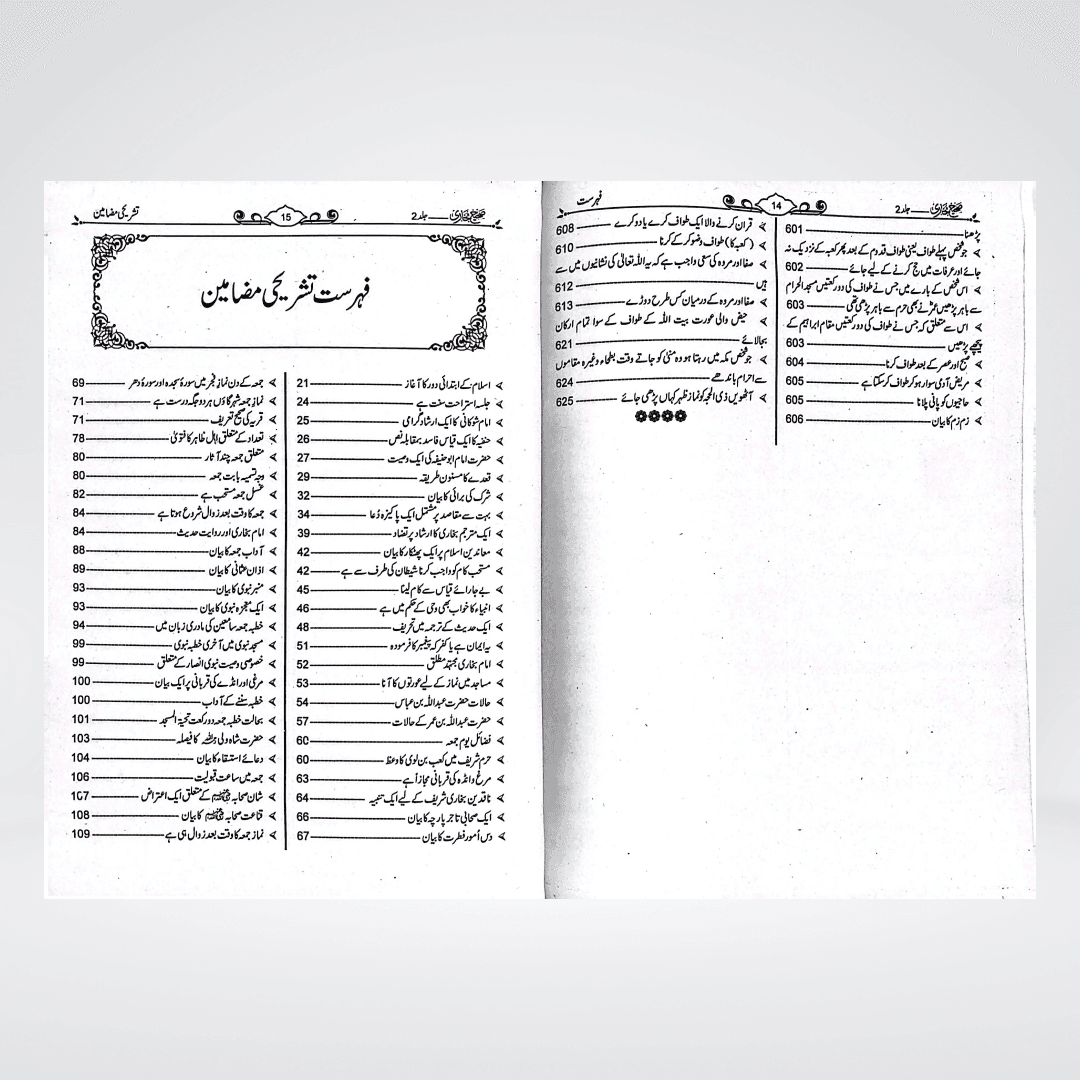 صحیح بخاری جلد 2
14
فہرست
پڑھنا 601
جو شخص پہلے طواف یعنی طواف قدوم کے بعد پھر کعبہ کے نزدیک نہ
جائے اور عرفات میں حج کرنے کے لیے جائے 602
اس شخص کے بارے میں جس نے طواف کی دو رکعتیں مسجد الحرام
سے باہر پڑھیں عمرؓ نے بھی حرم سے باہر پڑھی تھی 603
اس سے متعلق کہ جس نے طواف کی دو رکعتیں مقام ابراہیم کے
پیچھے پڑھیں 603
صبح اور عصر کے بعد طواف کرنا 604
مریض آدمی سوار ہو کر طواف کر سکتا ہے 605
حاجیوں کو پانی پلانا 605
زم زم کا بیان 606
قران کرنے والا ایک طواف کرے یا دو کرے 608
(کعبہ کا) طواف وضو کر کے کرنا 610
صفا اور مروہ کی سعی واجب ہے کہ یہ اللہ تعالیٰ کی نشانیوں میں سے
ہیں 612
صفا اور مروہ کے درمیان کس طرح دوڑے 613
حیض والی عورت بیت اللہ کے طواف کے سوا تمام ارکان
بجا لائے 621
جو شخص مکہ میں رہتا ہو وہ منیٰ کو جاتے وقت بطحاء وغیرہ مقاموں
سے احرام باندھے 624
آٹھویں ذی الحجہ کو نماز ظہر کہاں پڑھی جائے 625
صحیح بخاری جلد 2
15
تشریحی مضامین
فہرست تشریحی مضامین
اسلام کے ابتدائی دور کا آغاز 21
جلسہ استراحت سنت ہے 24
امام شوکانی کا ایک ارشاد گرامی 25
حنفیہ کا ایک قیاس فاسد بمقابلہ نص 26
حضرت امام ابوحنیفہ کی ایک وصیت 27
قعدے کا مسنون طریقہ 29
شرک کی برائی کا بیان 32
بہت سے مقاصد پر مشتمل ایک پاکیزہ دعا 34
ایک مترجم بخاری کا ارشاد پر تضاد 39
معاندین اسلام پر ایک پھٹکار کا بیان 42
مستحب کام کو واجب کرنا شیطان کی طرف سے ہے 42
بے جا رائے قیاس سے کام لینا 45
انبیاء کا خواب بھی وحی کے حکم میں ہے 46
ایک حدیث کے ترجمہ میں تحریف 48
یہ ایمان ہے یا کفر کہ پیغمبر کا فرمودہ 51
امام بخاری مجتہد مطلق 52
مساجد میں نماز کے لیے عورتوں کا آنا 53
حالات حضرت عبداللہ بن عباس 54
حضرت عبداللہ بن عمر کے حالات 57
فضائل یوم جمعہ 60
حرم شریف میں کعب بن لوی کا وعظ 60
مرغ و انڈہ کی قربانی مجازاً ہے 63
ناقدین بخاری شریف کے لیے ایک تنبیہ 64
ایک صحابی تاجر پارچہ کا بیان 66
دس اُمور فطرت کا بیان 67
جمعہ کے دن نماز فجر میں سورۂ سجدہ اور سورۂ دھر 69
نماز جمعہ شہر گاؤں ہر دو جگہ درست ہے 71
قریہ کی صحیح تعریف 71
تعداد کے متعلق اہل ظاہر کا فتویٰ 78
متعلق جمعہ چند آثار 80
وجہ تسمیہ بابت جمعہ 80
غسل جمعہ مستحب ہے 82
جمعہ کا وقت بعد زوال شروع ہوتا ہے 84
امام بخاری اور روایت حدیث 84
آداب جمعہ کا بیان 88
اذان عثمانی کا بیان 89
منبر نبوی کا بیان 93
ایک معجزہ نبوی کا بیان 93
خطبہ جمعہ سامعین کی مادری زبان میں 94
مسجد نبوی میں آخری خطبہ نبوی 99
خصوصی وصیت نبوی انصار کے متعلق 99
مرغی اور انڈے کی قربانی پر ایک بیان 100
خطبہ سننے کے آداب 100
بحالت خطبہ جمعہ دو رکعت تحیۃ المسجد 101
حضرت شاہ ولی اللہ کا فیصلہ 103
دعائے استسقاء کا بیان 104
جمعہ میں ساعت قبولیت 106
شان صحابہ کے متعلق ایک اعتراض 107
قناعت صحابہ کا بیان 108
نماز جمعہ کا وقت بعد زوال ہی ہے 109